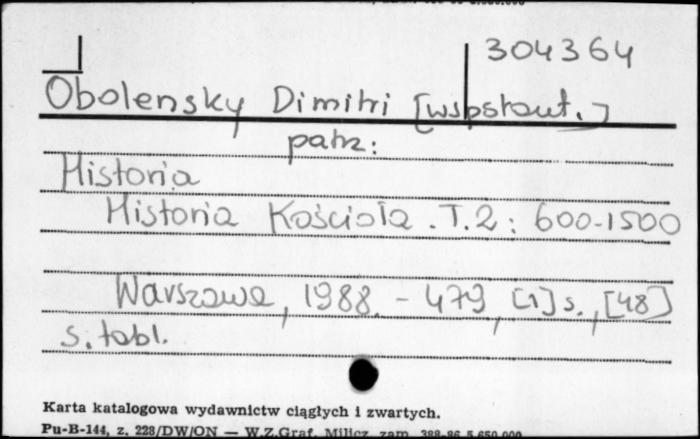 304364
Obolensky Dimitri [współaut.]
patrz:
Historia
Historia Kościoła. T.2: 600-1500
Warszawa, 1988. - 479, [1] s., [48]
s. tabl.
Karta katalogowa wydawnictw ciągłych i zwartych.
Pu-B-144, z. 228/DW/ON — W.Z.Graf. Milicz zam. 388-86 5.650.000